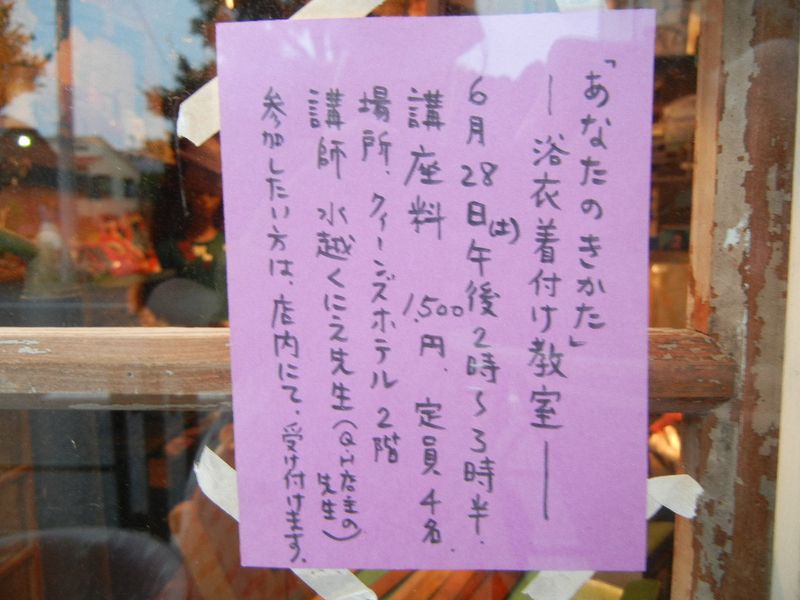 「あなたのきかた」
— 浴衣着付け教室 —
6月28日(土)午後2時〜3時半.
講座料 1,500円、定員4名.
場所、クィーンズホテル2階
講師 水越くにえ先生(Q.H店主の先生)
参加したい方は、店内にて、受け付けます、